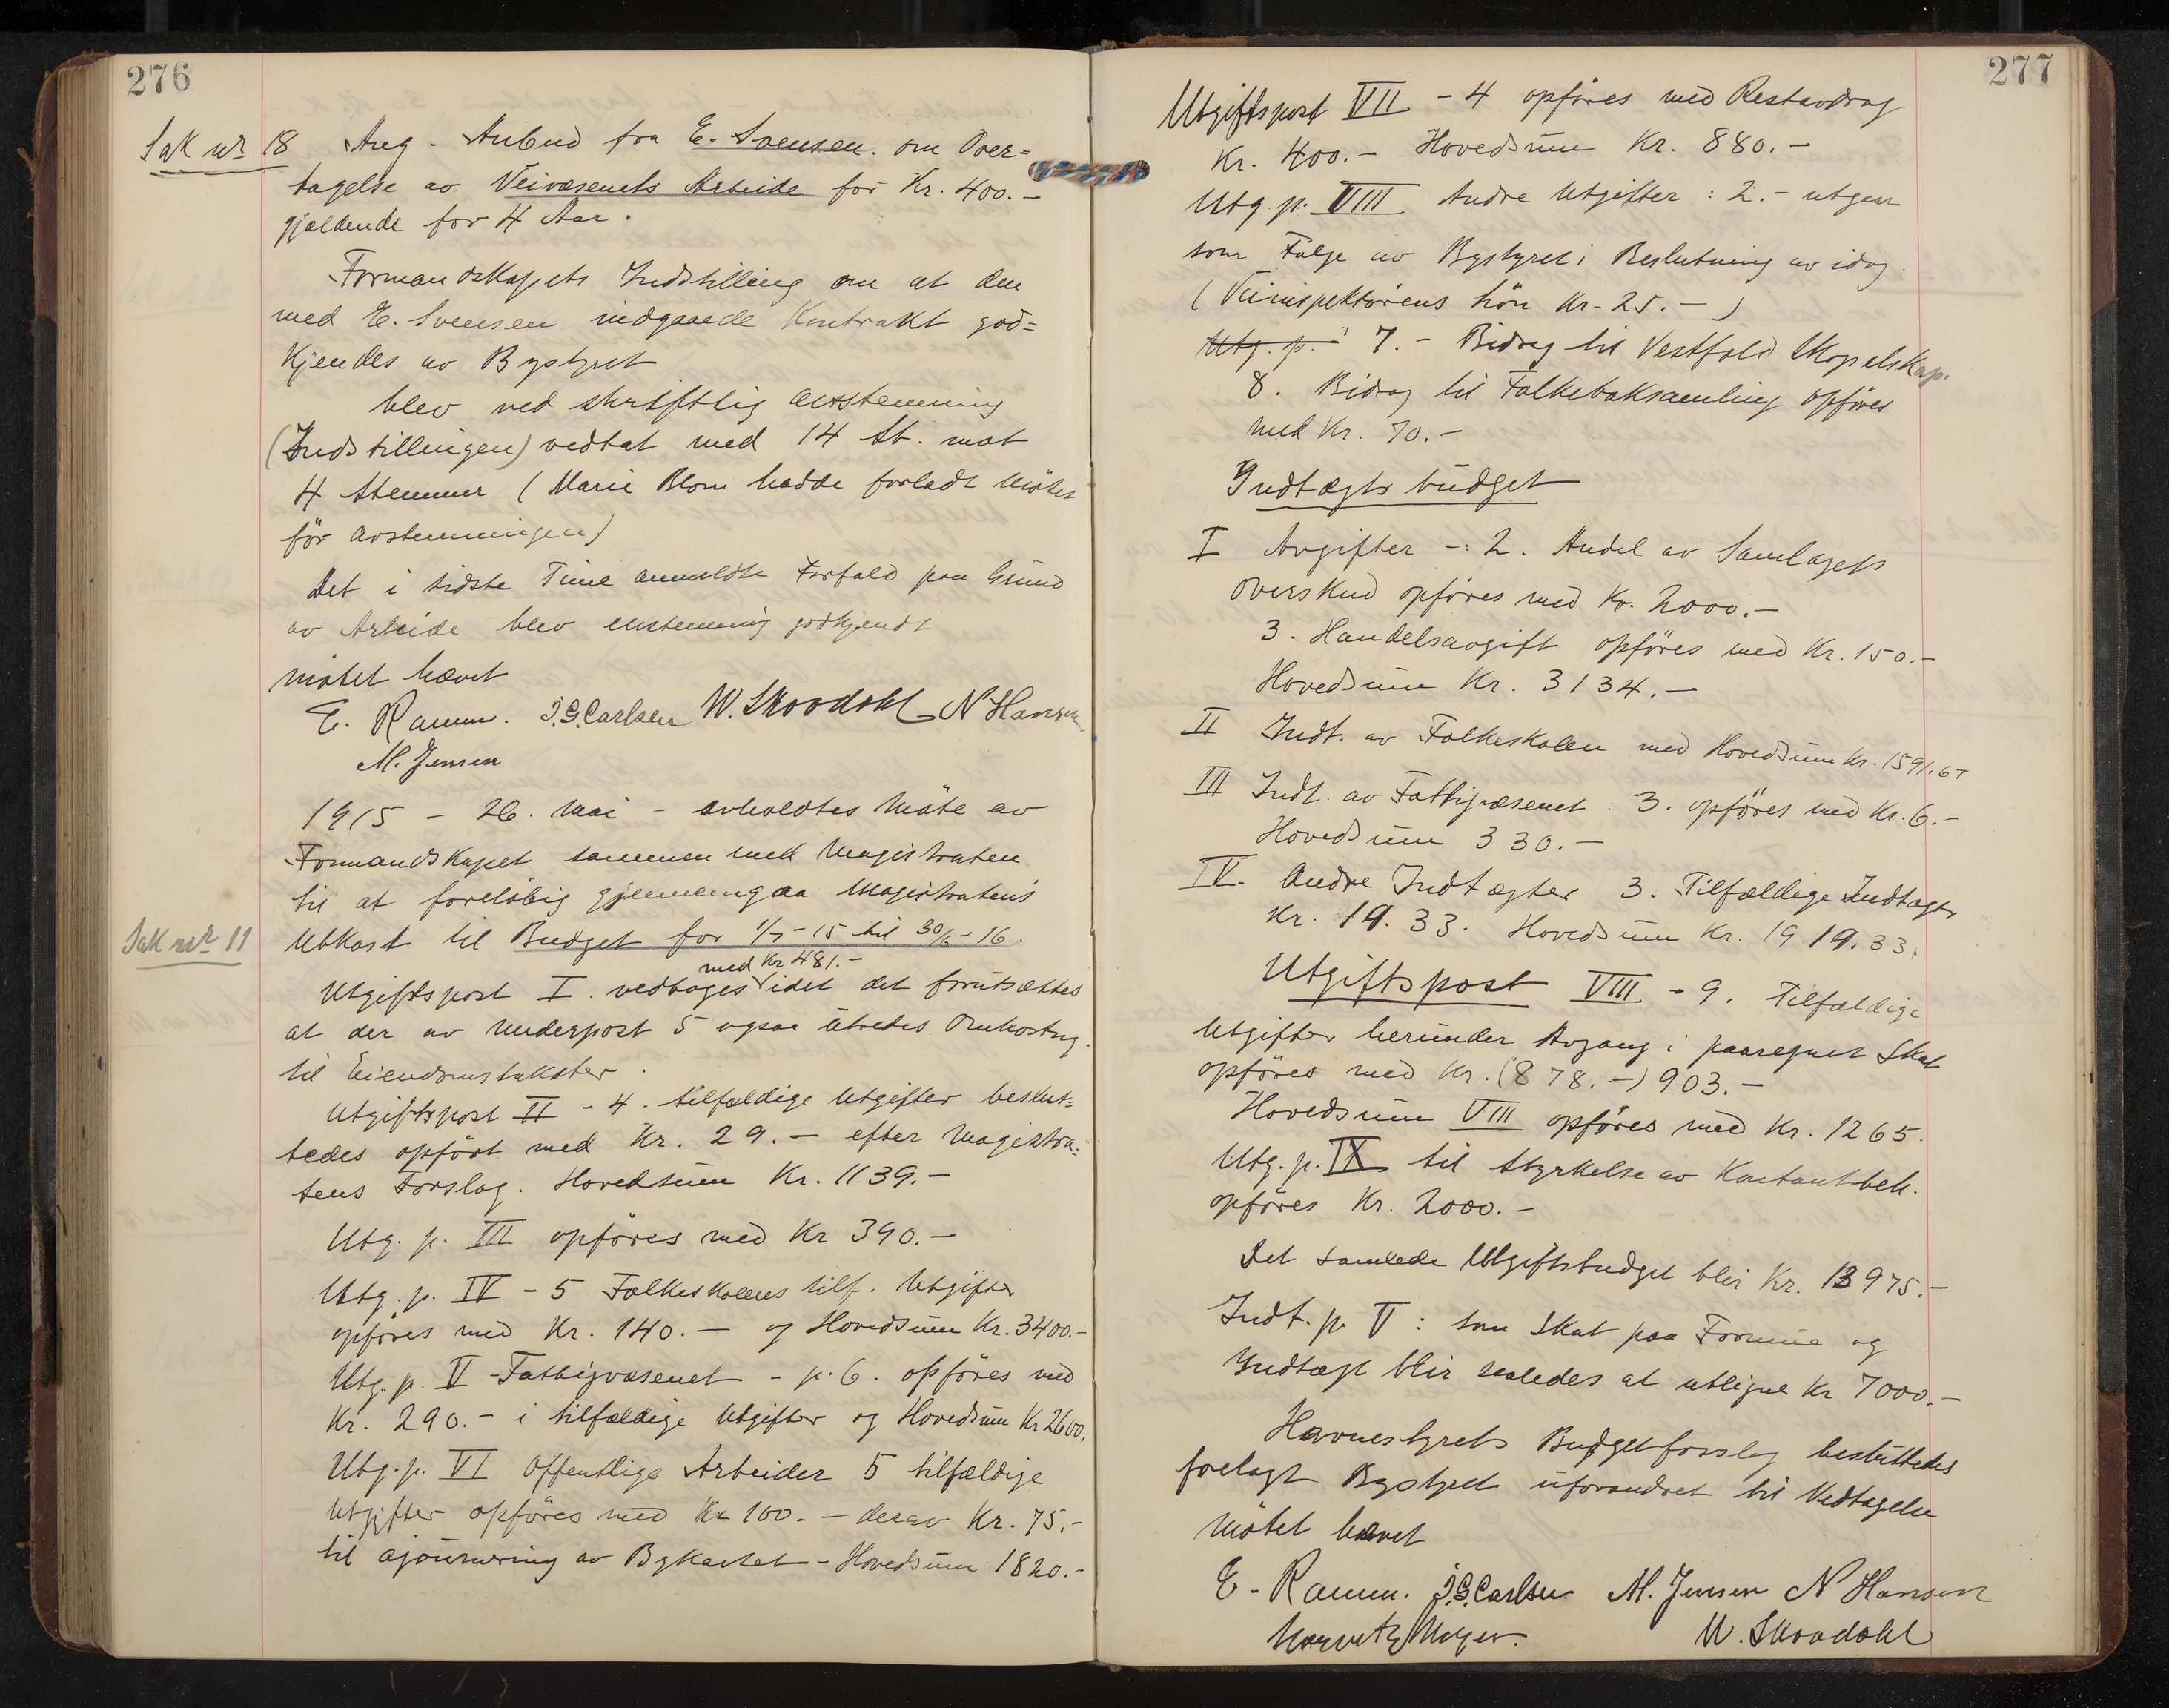 276
Sak nr 18 Ang. Anbud fra E. Svensen om Over=
tagelse av Veivæsenets Arbeide for Kr. 400.-
gjældende for 4 Aar.
Formandskapets Indstilling om at den
med E. Svensen indgaaede Kontrakt god=
kjendes av Bystyret
blev ved skriftlig avstemning
(Indstillingen) vedtat med 14 St. mot
4 Stemmer (Marie Blom hadde forladt Møtet
før avstemningen)
Det i sidste Time anmeldte Forfald paa Grund
av Arbeide blev enstemmig godkjendt
møtet hævet
E. Ramm. J.G. Carlsen W. Skoodahl N Hansen
M. Jensen
1915 - 26. Mai - avholdtes Møte av
Formandskapet sammen med Magistraten
til at foreløbig gjennemgaa Magistratens
Sak nr 11 Utkast til Budget for 1/7-15 til 30/6-16.
med Kr 481.-
Utgiftspost I. vedtages idet det forutsættes
at der av Underpost 5 ogsaa utredes Omkostng.
til Eiendomstakster.
Utgiftspost II - 4. tilfældige Utgifter beslut=
tedes opført med Kr. 29.- efter Magistra=
tens Forslag. Hovedsum Kr. 1139.-
Utg. p. III opføres med Kr 390.-
Utg. p. IV - 5 Folkeskolens tilf. Utgifter
opføres med Kr. 140.- og Hovedsum Kr. 3400.-
Utg. p. V - Fattigvæsenet - p. 6. opføres med
Kr. 290.- i tilfældige Utgifter og Hovedsum Kr 2600.
Utg. p. VI Offentlige Arbeider 5 tilfældige
Utgifter opføres med Kr 100.- derav Kr. 75.-
til ajourføring av Bykartet - Hovedsum 1820.-
277
Utgiftspost VII - 4 opføres med Restavdrag
Kr. 400.- Hovedsum Kr. 880.-
Utg. p. VIII Andre Utgifter : 2.- utgaar
som Følge av Bystyrets Beslutning av idag
(Veiinspektørens Løn Kr. 25.-)
Utg. p. 7.- Bidrag til Vestfold Skogselskap.
8. Bidrag til Folkeboksamling opføres
med Kr. 70.-
Indtægtsbudget
I Avgifter -: 2. Andel av Samlagets
Overskud opføres med Kr. 2000.-
3. Handelsavgift opføres med Kr. 150.-
Hovedsum Kr. 3134.-
II Indt. av Folkeskolen med Hovedsum Kr. 1591.67
III Indt. av Fattigvæsenet 3. opføres med Kr. 6.-
Hovedsum 330.-
IV. Andre Indtægter 3. Tilfældige Indtægter
Kr. 19.33. Hovedsum Kr. 1919.33.
Utgiftspost VIII - 9. Tilfældige
Utgifter herunder Avgang i paaregnet Skat
opføres med Kr. (878.-) 903.-
Hovedsum VIII opføres med Kr. 1265.
Utg. p. IX til Styrkelse av Kontantbeh.
opføres Kr. 2000.-
Det samlede Utgiftsbudget blir Kr. 13975.-
Indt. p. V : som Skat paa Formue og
Indtægt blir saaledes at utligne Kr 7000.-
Havnestyrets Budgetforslag besluttedes
forelagt Bystyret uforandret til Vedtagelse
Møtet hævet
E. Ramm. J.G. Carlsen M. Jensen N Hansen
W. Skoodahl